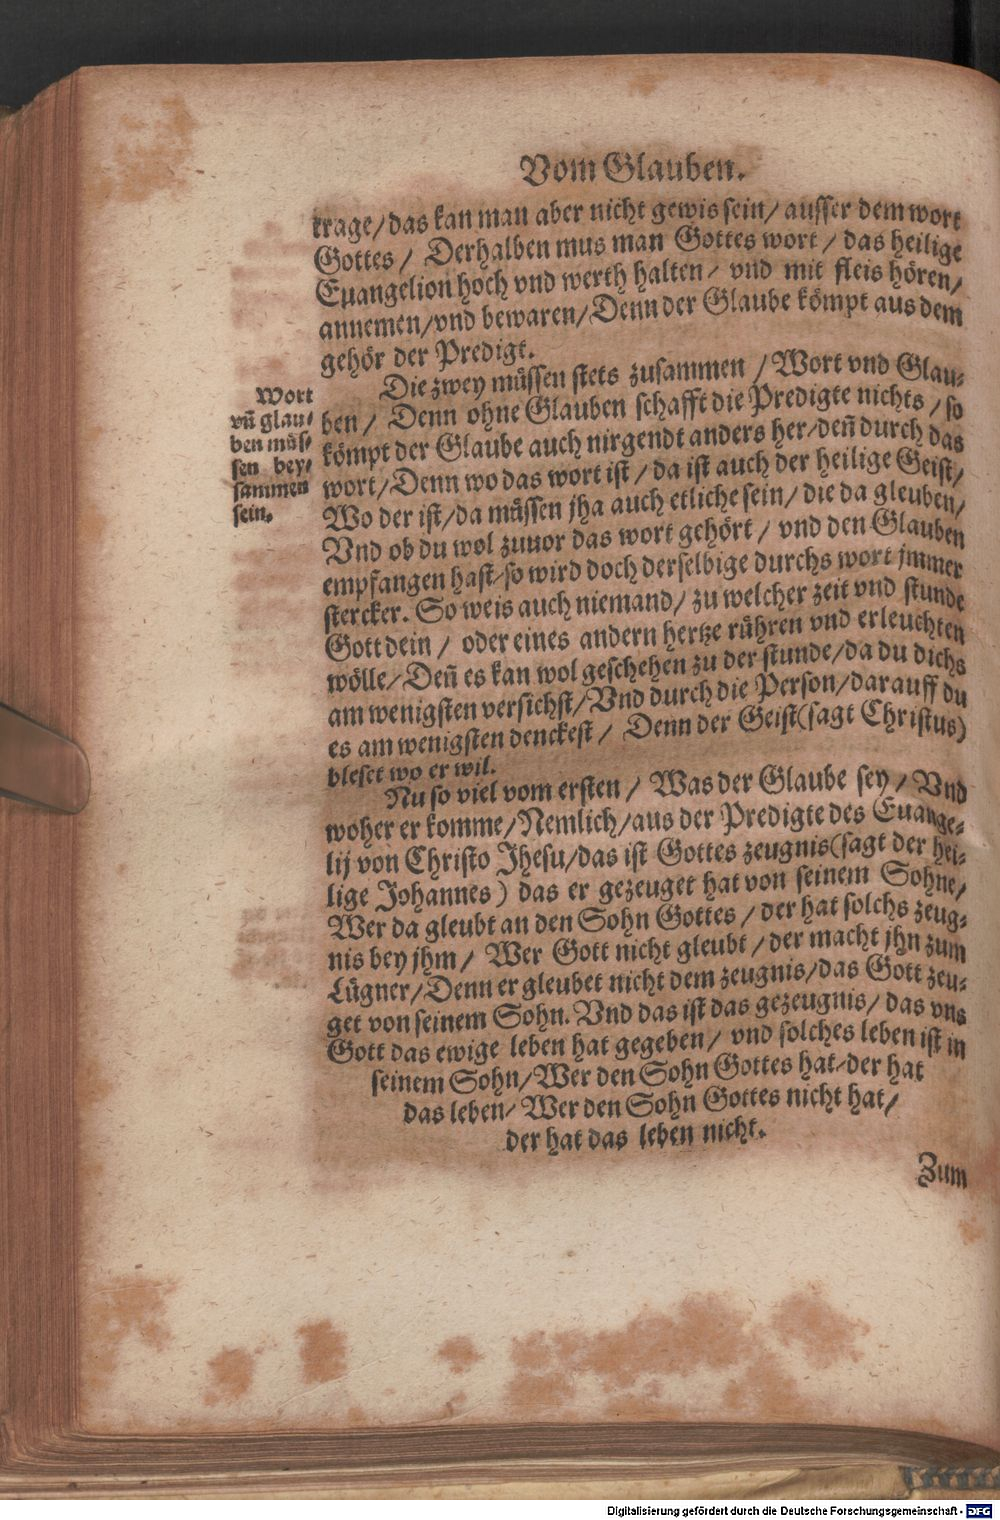 Vom Glauben.
trage/ das kan man aber nicht gewis sein/ ausser dem wort
Gottes / Derhalben mus man Gottes wort / das heilige
Euangelion hoch vnd werth halten/ vnd mit fleis hören/
annemen/vnd bewaren/Denn der Glaube kömpt aus dem
gehör der Predigt.
Wort
vñ glau-
ben müs-
sen bey-
sammen
sein.
Die zwey müssen stets zusammen / Wort vnd Glau-
ben / Denn ohne Glauben schafft die Predigte nichts / so
kömpt der Glaube auch nirgendt anders her/deñ durch das
wort/Denn wo das wort ist / da ist auch der heilige Geist/
Wo der ist/da müssen jha auch etliche sein/ die da gleuben/
Vnd ob du wol zuuor das wort gehört / vnd den Glauben
empfangen hast/so wird doch derselbige durchs wort jmmer
stercker. So weis auch niemand/ zu welcher zeit vnd stunde
Gott dein / oder eines andern hertze rühren vnd erleuchten
wölle/Deñ es kan wol geschehen zu der stunde/da du dichs
am wenigsten versichst/Vnd durch die Person/darauff du
es am wenigsten denckest / Denn der Geist(sagt Christus)
bleset wo er wil.
Nu so viel vom ersten / Was der Glaube sey / Vnd
woher er komme/Nemlich/aus der Predigte des Euange-
lij von Christo Jhesu/das ist Gottes zeugnis(sagt der hei-
lige Johannes) das er gezeuget hat von seinem Sohne/
Wer da gleubt an den Sohn Gottes / der hat solchs zeug-
nis bey jhm / Wer Gott nicht gleubt / der macht jhn zum
Lügner/Denn er gleubet nicht dem zeugnis/das Gott zeu-
get von seinem Sohn. Vnd das ist das gezeugnis/ das vns
Gott das ewige leben hat gegeben/ vnd solches leben ist in
seinem Sohn/Wer den Sohn Gottes hat/der hat
das leben/ Wer den Sohn Gottes nicht hat/
der hat das leben nicht.
Zum
Digitalisierung gefördert durch die Deutsche Forschungsgemeinschaft - DFG